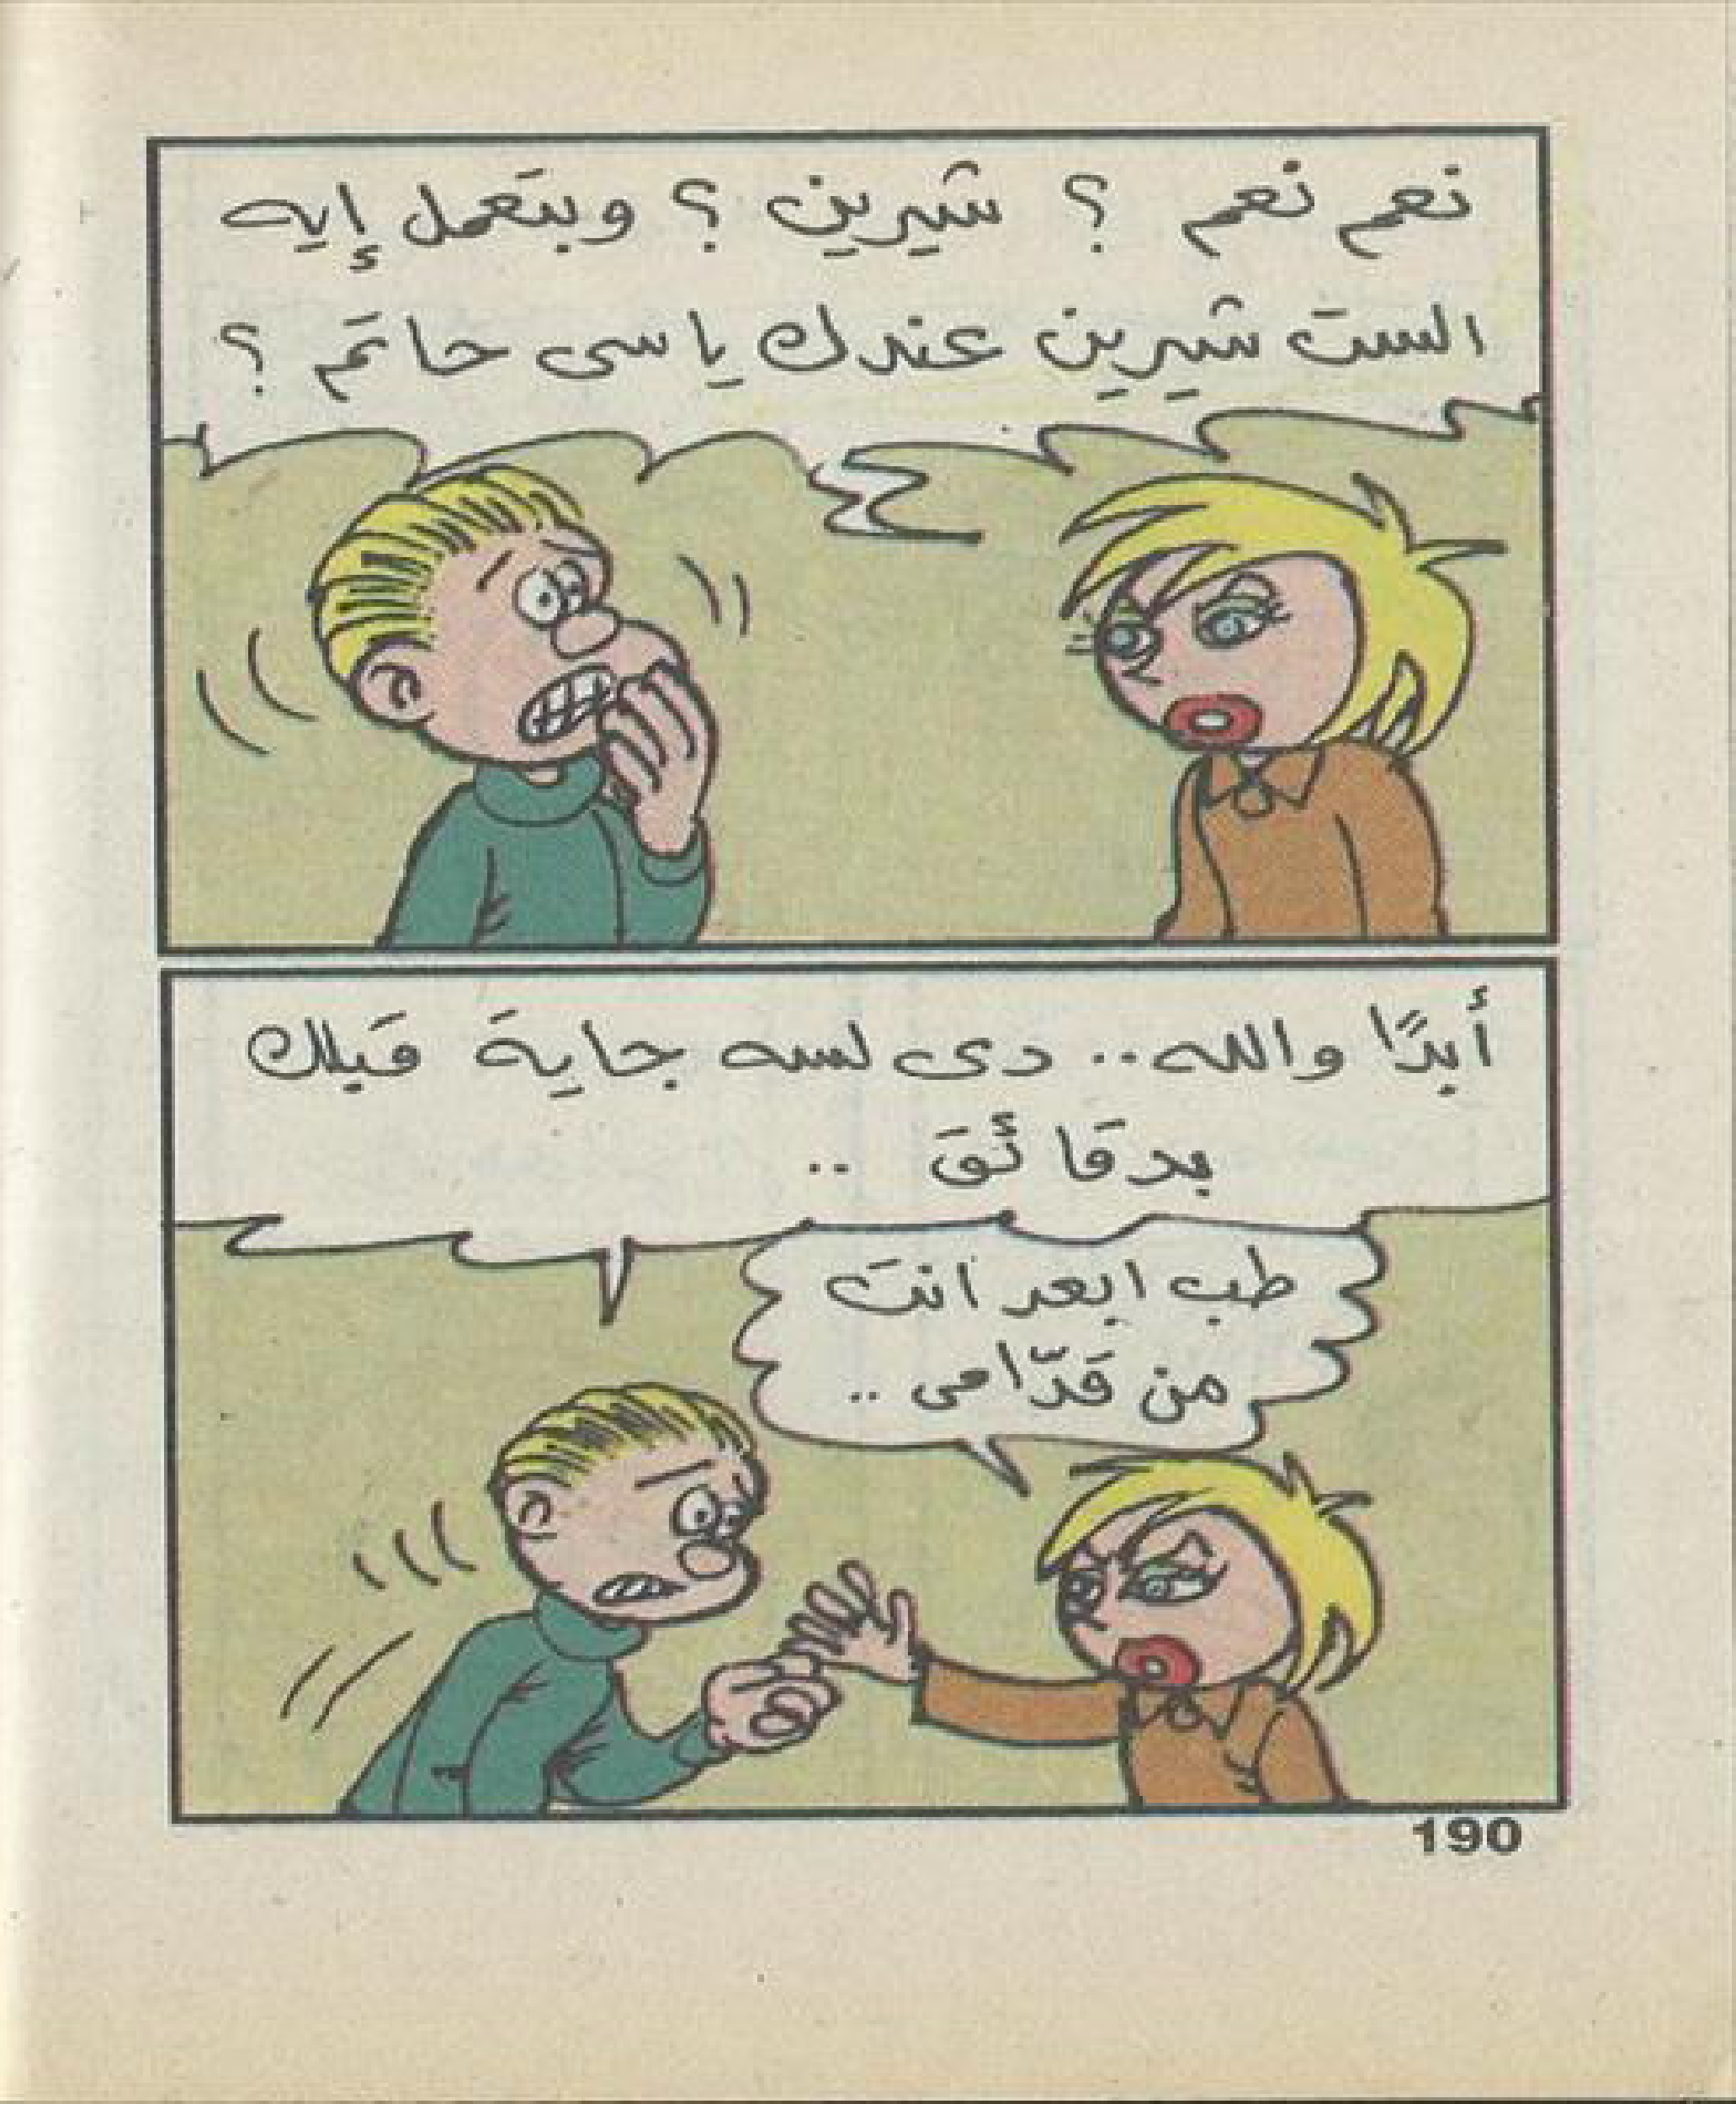 نعم نعم ؟ شيرين ؟ وبتعمل إيه
الست شيرين عندك ياسى حاتم ؟
أبدًا والله.. دى لسه جاية قبلك
بدقائق ..
طب ابعد انت
من قدّامى ..
190